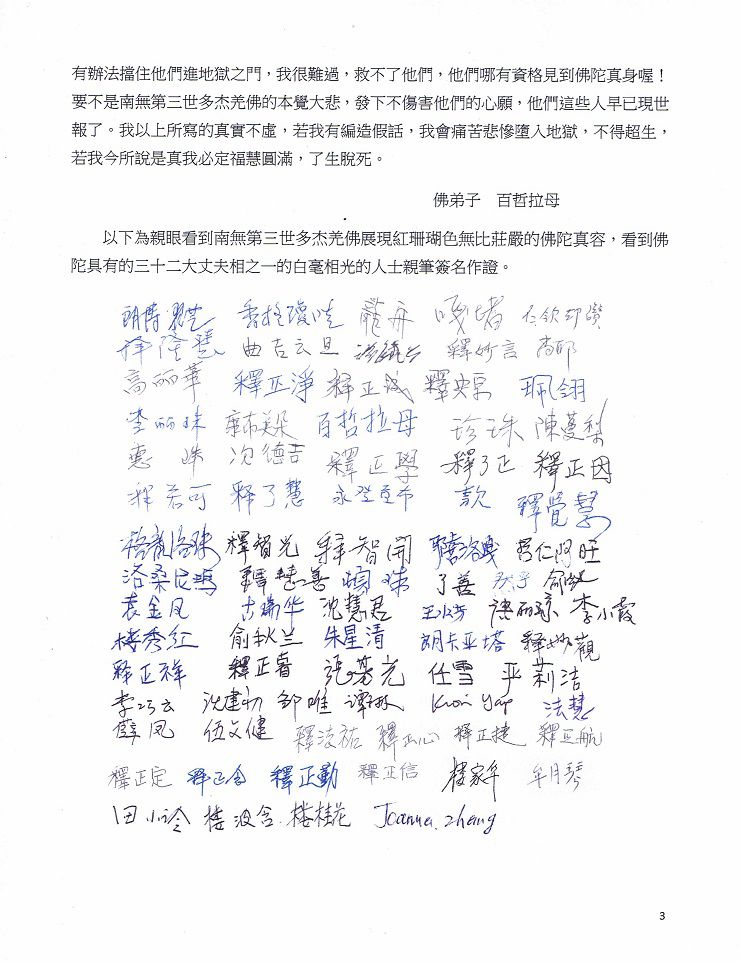 有辦法擋住他們進地獄之門，我很難過，救不了他們，他們哪有資格見到佛陀真身喔！
要不是南無第三世多杰羌佛的本覺大悲，發下不傷害他們的心願，他們這些人早已現世
報了。我以上所寫的真實不虛，若我有編造假話，我會痛苦悲慘墮入地獄，不得超生，
若我今所說是真我必定福慧圓滿，了生脫死。
佛弟子　百哲拉母
以下為親眼看到南無第三世多杰羌佛展現紅珊瑚色無比莊嚴的佛陀真容，看到佛
陀具有的三十二大丈夫相之一的白毫相光的人士親筆簽名作證。
香格瓊哇 龍舟 嘎堵
釋隆慧 曲吉云旦 釋妙言
高丽華 釋正淨 释正诚 珮翎
李丽珠 百哲拉母 珍珠 陳蔓梨
惠珠 次德吉 釋正學 释了正 釋正因
释若可 释了慧 釋覺慧
釋智光 释智開
釋慧善 了善
袁金凤 古瑞华 沈慧君 李小霞
楼秀红 俞秋兰 朱星清 朗卡亚塔 释妙觀
释正祥 釋正睿 任雪 严莉洁
李巧云 沈建初 邹唯 法慧
薛凤 伍文健 释正心 釋正捷 釋正航
釋正定 釋正勤 釋正信 楼家牟 牟月琴
田小泠 楼桂花 Joanna. Zhang
3